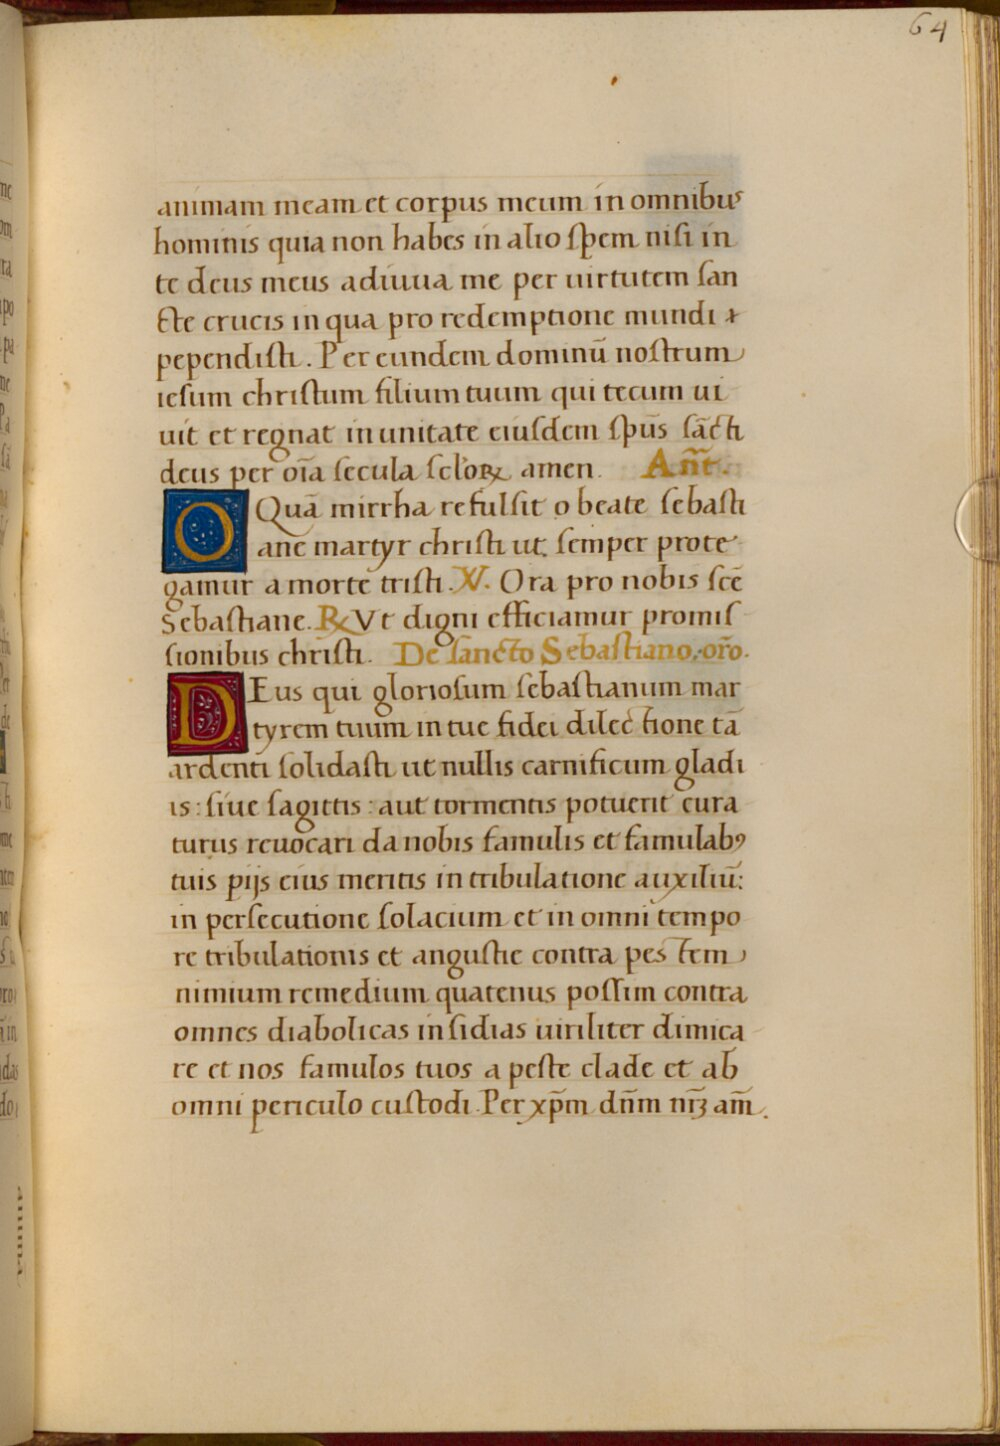 64
animam meam et corpus meum in omnibus
hominis quia non habes in alio spem nisi in
te deus meus adiuua me per uirtutem san
cte crucis in qua pro redemptione mundi
pependisti. Per eundem dominū nostrum
iesum christum filium tuum qui tecum ui
uit et regnat in unitate eiusdem spūs sācti
deus per oīa secula sclorꝝ amen. Añt.
O Quā mirrha refulsit o beate sebasti
ane martyr christi ut semper prote
gamur a morte tristi. ℣. Ora pro nobis scē
Sebastiane. ℞ Vt digni efficiamur promis
sionibus christi. De sancto Sebastiano. oro.
DEus qui gloriosum sebastianum mar
tyrem tuum in tue fidei dilectione tā
ardenti solidasti ut nullis carnificum gladi
is: siue sagittis: aut tormentis potuerit cura
turus reuocari da nobis famulis et famulabꝰ
tuis pijs eius meritis in tribulatione auxiliū:
in persecutione solacium et in omni tempo
re tribulationis et angustie contra pestem
nimium remedium quatenus possim contra
omnes diabolicas insidias uiriliter dimica
re et nos famulos tuos a peste clade et ab
omni periculo custodi. Per xp̄m dn̄m nr̄ꝫ am̄.